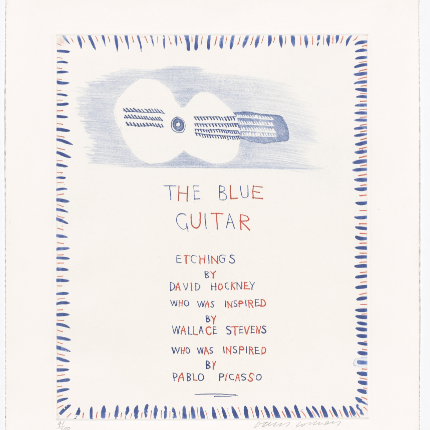 THE BLUE
GUITAR
ETCHINGS
BY
DAVID HOCKNEY
WHO WAS INSPIRED
BY
WALLACE STEVENS
WHO WAS INSPIRED
BY
PABLO PICASSO